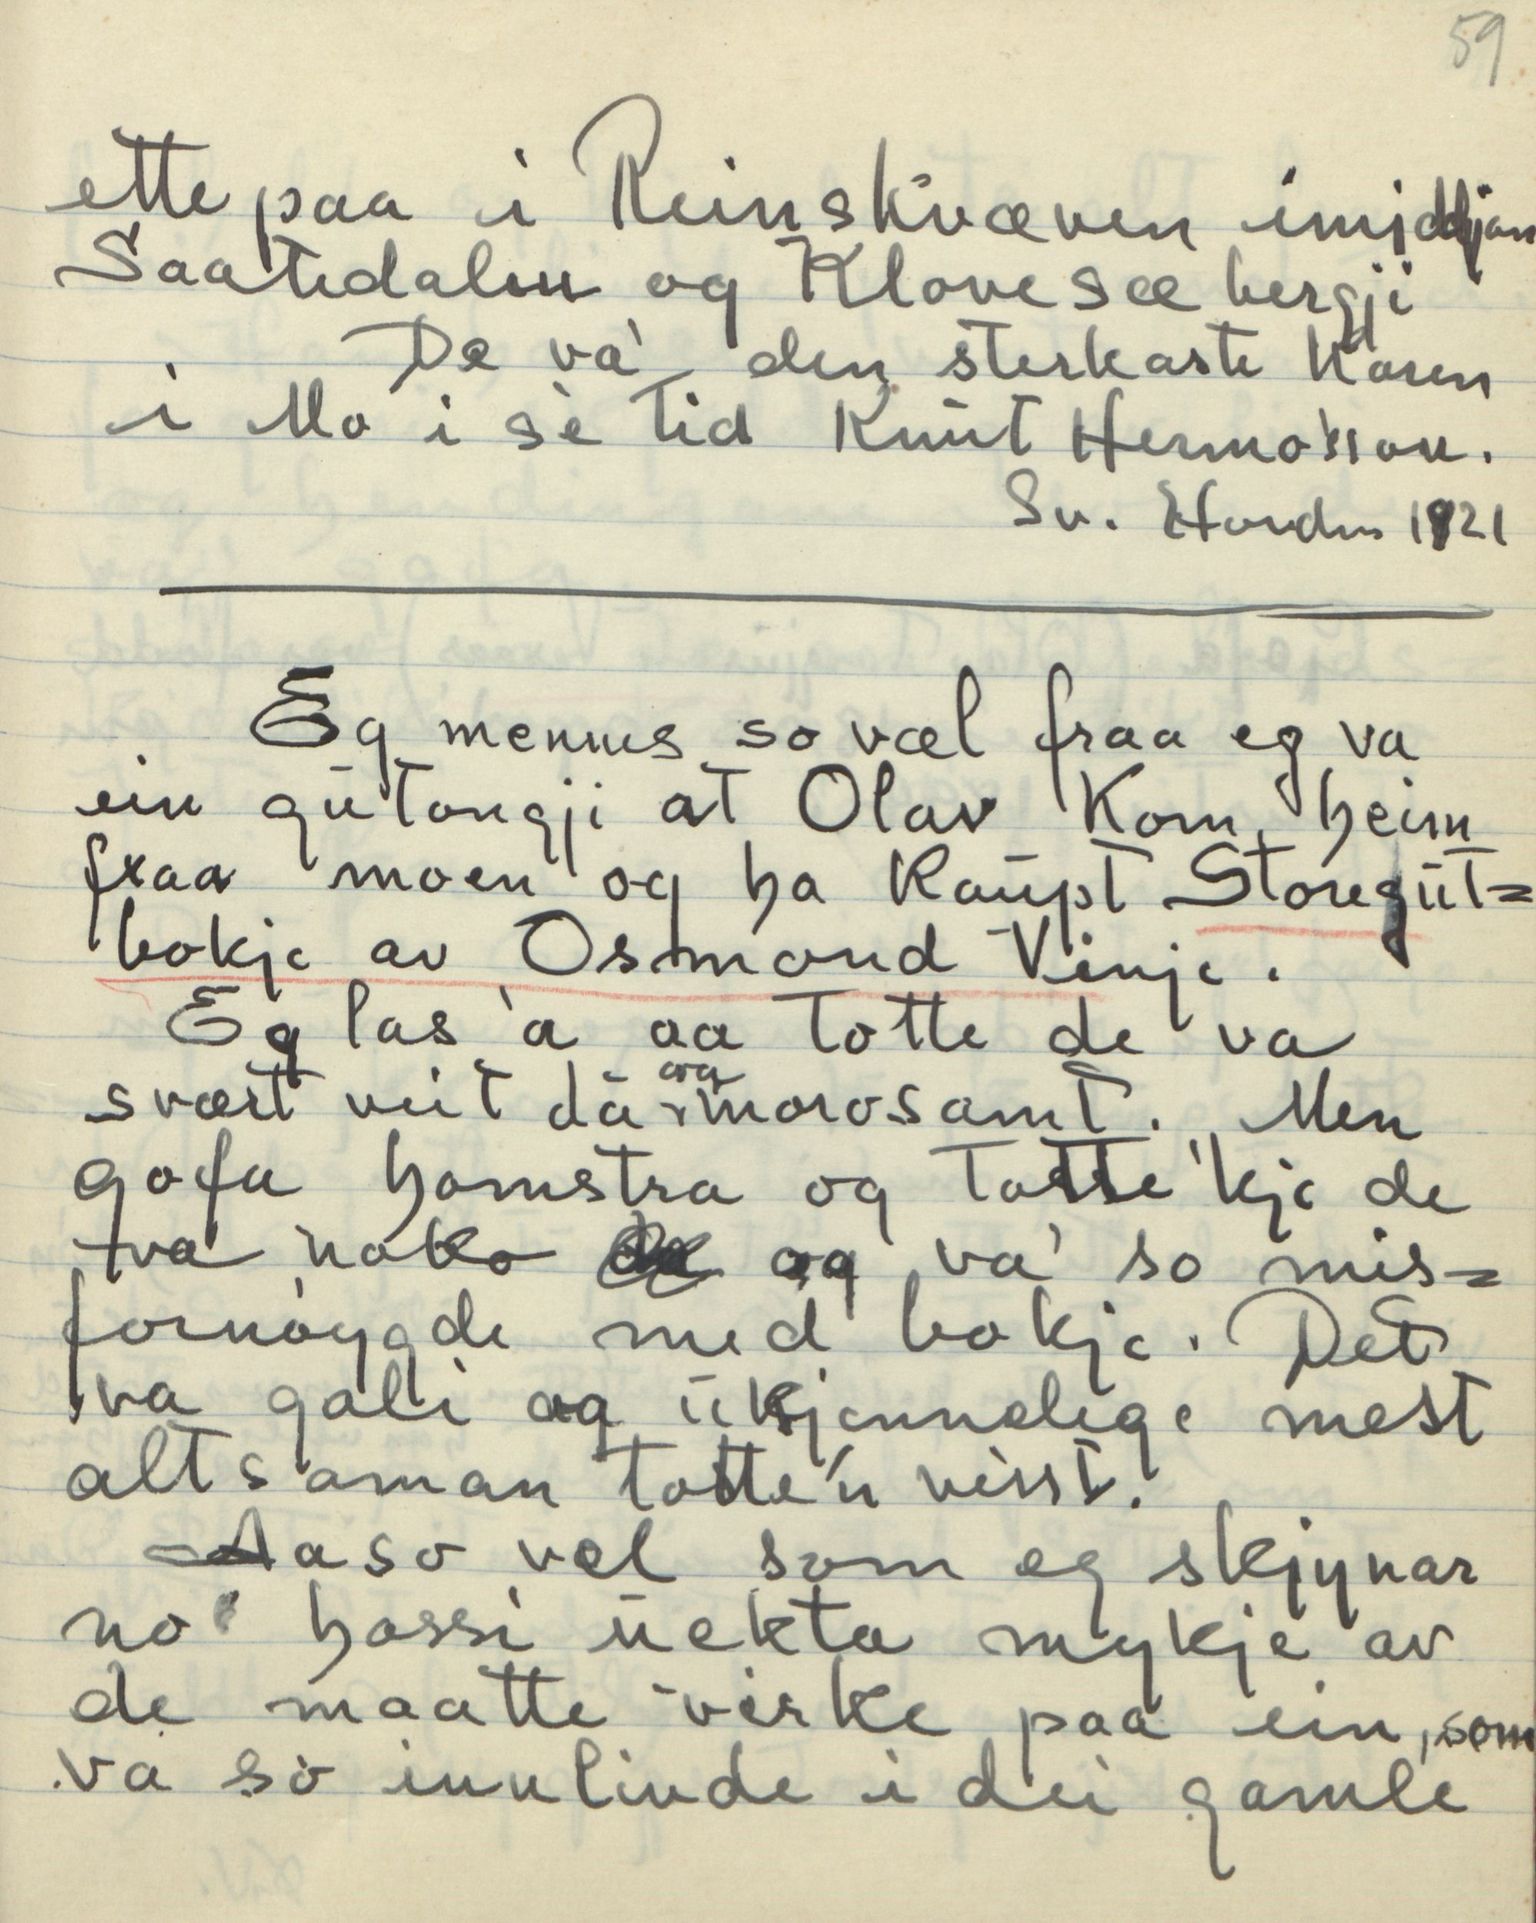 59
ette paa i Reinskvæven imjddjan
Saatedalen og Klovesæbergji
De va' den sterkaste karen
i Mo i sè tid Knut Hermo'son.
Sv. Hovden 1921
Eg menns so væl fraa eg va
ein gutongji at Olav kom heim
fraa moen og ha kaupt Storegut=
bokje av Osmond Vinje.
Eg las 'a aa totte de va
svært veit dä og morosamt. Men
gofa homstra og totte 'kje de
va noko og va' so mis=
fornøygde med bokje. Det
va gali og ukjennelege mest
altsaman totte'n visst.
Aa so vel som eg skjynar
no' hossi uekta mykje av
de maatte virke paa ein, som
va so innlivde i dei gamle